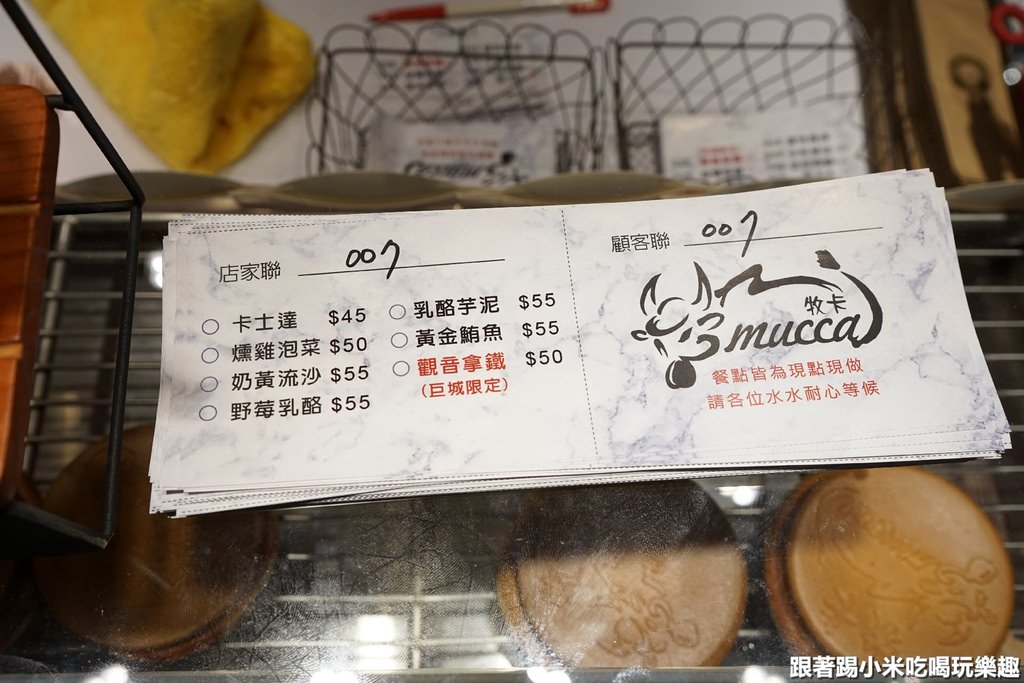 店家聯 007
卡士達 $45
燻雞泡菜 $50
奶黃流沙 $55
野莓乳酪 $55
乳酪芋泥 $55
黃金鮪魚 $55
觀音拿鐵 $50
(巨城限定)
顧客聯 007
牧卡
mucca
餐點皆為現點現做
請各位水水耐心等候
跟著踢小米吃喝玩樂趣